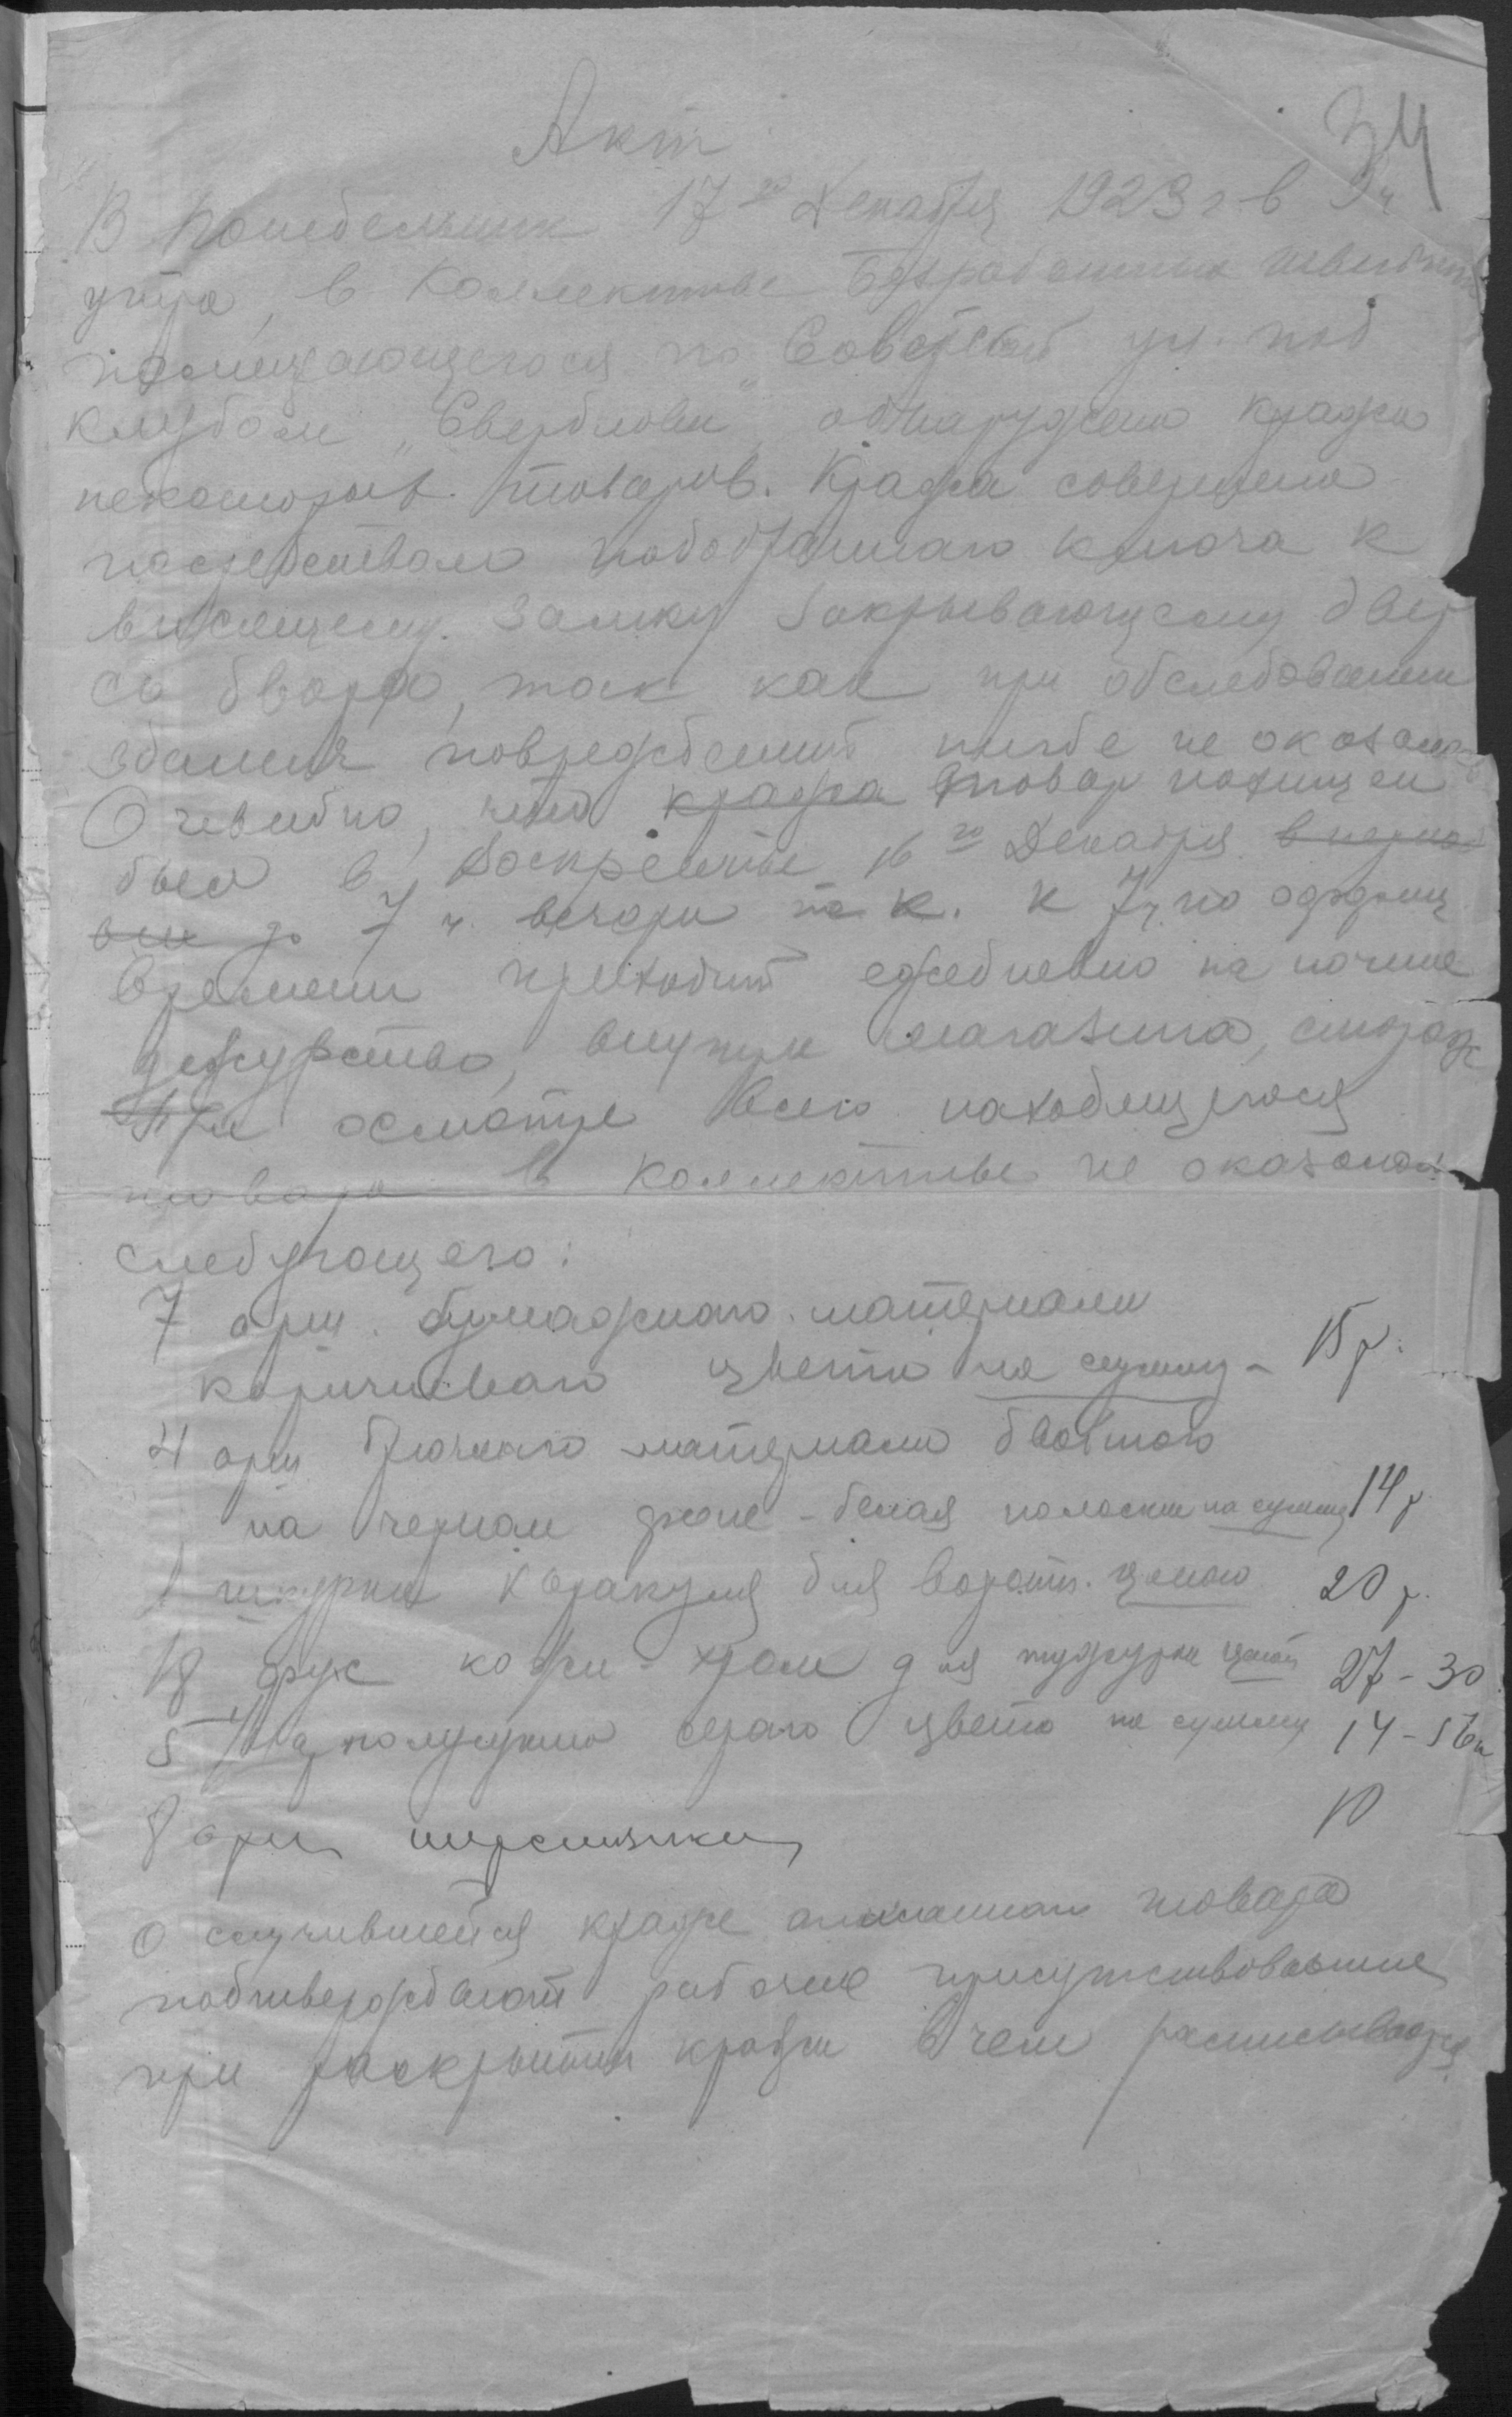 34
Акт
В понедельник 17го Декабря 1923 г. в 9 ч
утра, в Коллективе Безработных швейников
помещающегося по Советской ул. под
клубом „Свердлова" обнаружена кража
некоторых товаров. Кража совершена
посредством подобранаго ключа к
висящему замку закрывающему двер
со двора, так как при обследовании
здания повреждений нигде не оказалось
Очевидно, что кража товар похищен
был в Воскресенье 16го Декабря
до 7 ч. вечера т. к. к 7 ч. по
времени приходит ежедневно на ночное
дежурство, внутрь магазина, сторож
При осмотре всего находящегося
товара в Коллективе не оказалось
следующего:
7 арш. бумажного материала
коричневаго цвета на сумму - 15 р.
4 арш брючнаго материала двойного
на черном фоне - белая полоска на сумму 14 р.
1 шкурка каракуля для воротн. ценою 20 р.
18 фус кожи - хром для тужурки ценой 27 - 30
5 1/4 а. полусукна сераго цвета на сумму 14 - 56 к
8 арш шерстянки 10
О случившейся краже означенного товара
подтверждают рабочие присутствовавшие
при раскрытии кражи в чем расписываются